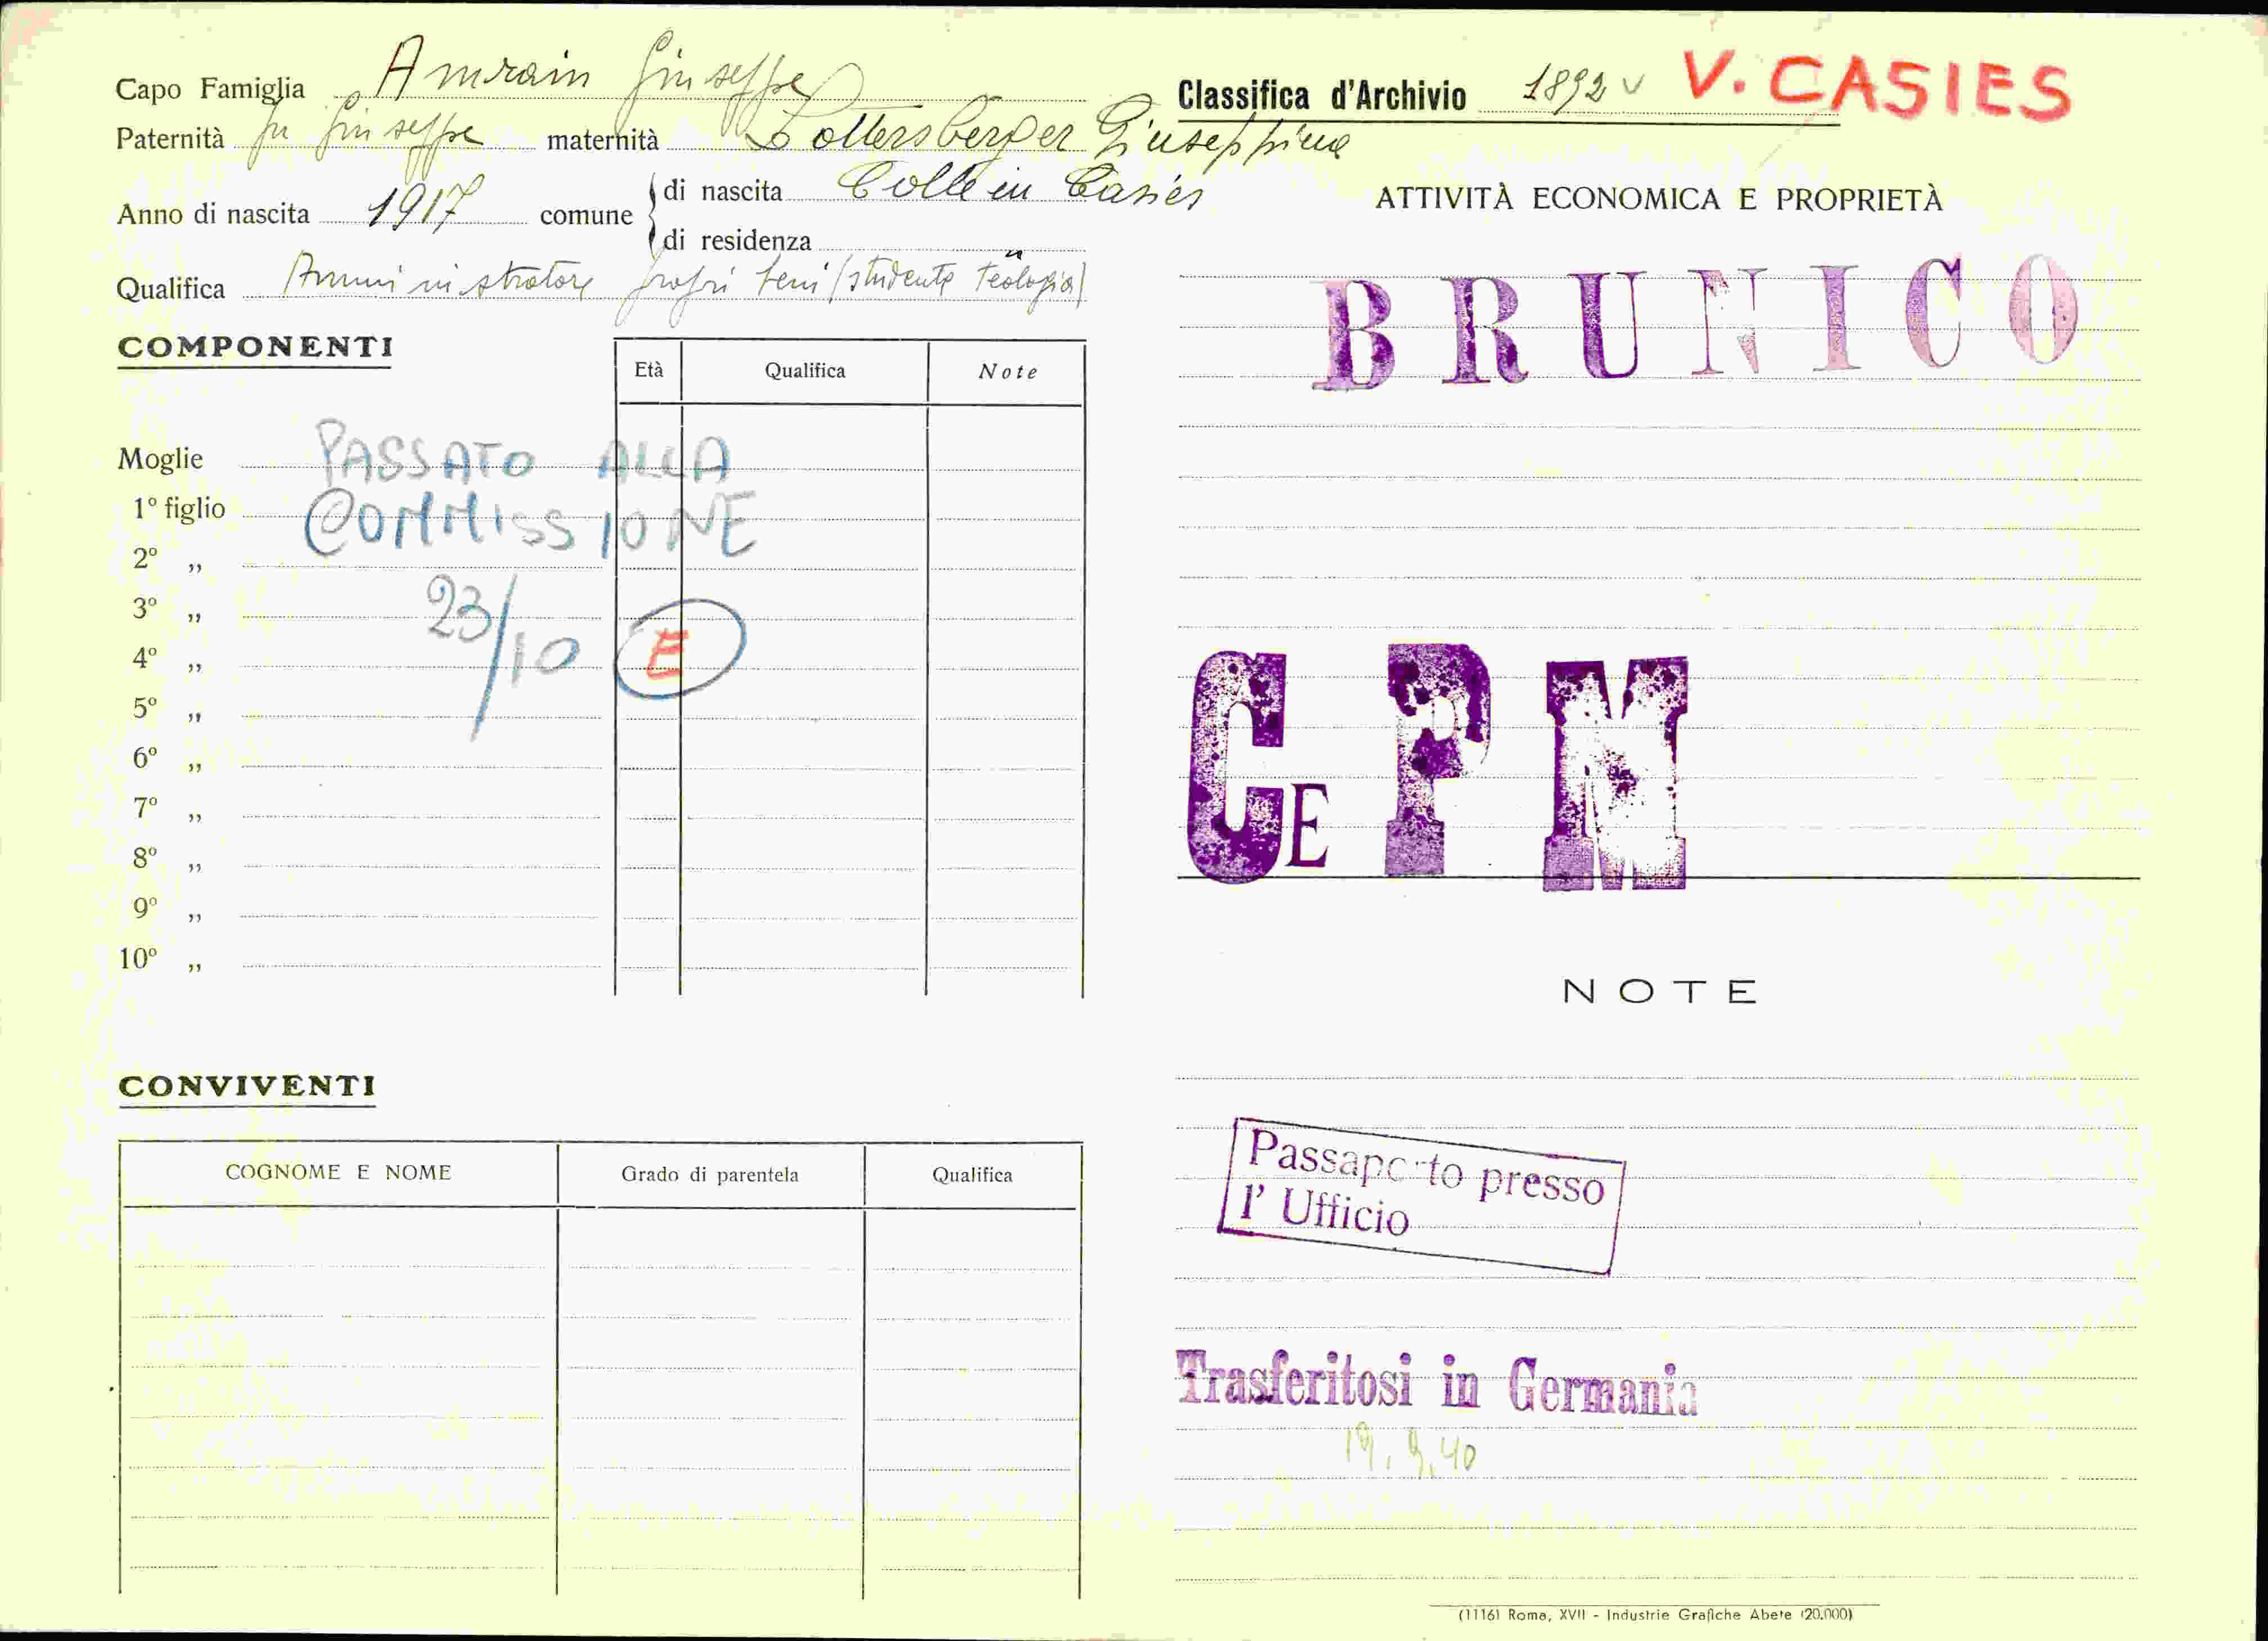 Capo Famiglia Amrain Giuseppe
Paternità fu Giuseppe maternità Giuseppina
Anno di nascita 1917 comune di nascita Colle in Casies
di residenza
Qualifica Amministratore propri beni (studente teologia)
COMPONENTI
Età Qualifica Note
Moglie
1º figlio
2º „
3º „
4º „
5º „
6º „
7º „
8º „
9º „
10º „
PASSATO ALLA
COMMISSIONE
23/10 E
CONVIVENTI
COGNOME E NOME Grado di parentela Qualifica
Classifica d'Archivio 1892 V. CASIES
ATTIVITÀ ECONOMICA E PROPRIETÀ
BRUNICO
CE P M
NOTE
Passaporto presso
l' Ufficio
Trasferitosi in Germania
19.9.40
(11116) Roma, XVII - Industrie Grafiche Abete (20.000)